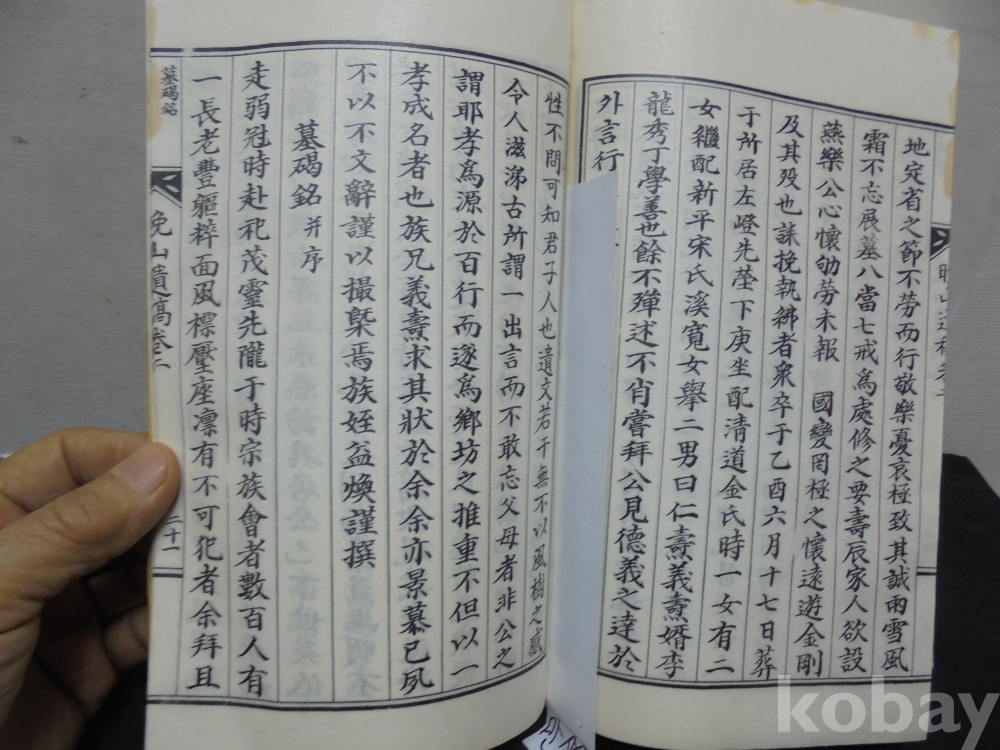 地定省之節不勞而行敬樂憂哀極致其誠雨雪風
霜不忘展墓八當七戒爲處修之要壽辰家人欲設
燕樂公心懷劬勞未報 國變罔極之懷遠遊金剛
及其歿也誄挽執紼者衆卒于乙酉六月十七日葬
于所居左嶝先塋下庚坐配清道金氏時一女有二
女繼配新平宋氏溪寬女擧二男曰仁壽義壽婿李
龍秀丁學善也餘不殫述不肖嘗拜公見德義之達於
外言行
性不問可知君子人也遺文若干無不以風樹之感
令人滋涕古所謂一出言而不敢忘父母者非公之
謂耶孝爲源於百行而遂爲鄉坊之推重不但以一
孝成名者也族兄義壽求其狀於余余亦景慕已夙
不以不文辭謹以撮槩焉族姪益煥謹撰
墓碣銘 并序
走弱冠時赴祀茂靈先隴于時宗族會者數百人有
一長老豐軀粹面風標壓座凛有不可犯者余拜且
墓碣銘
晩山遺稿卷二
二十一
kobay